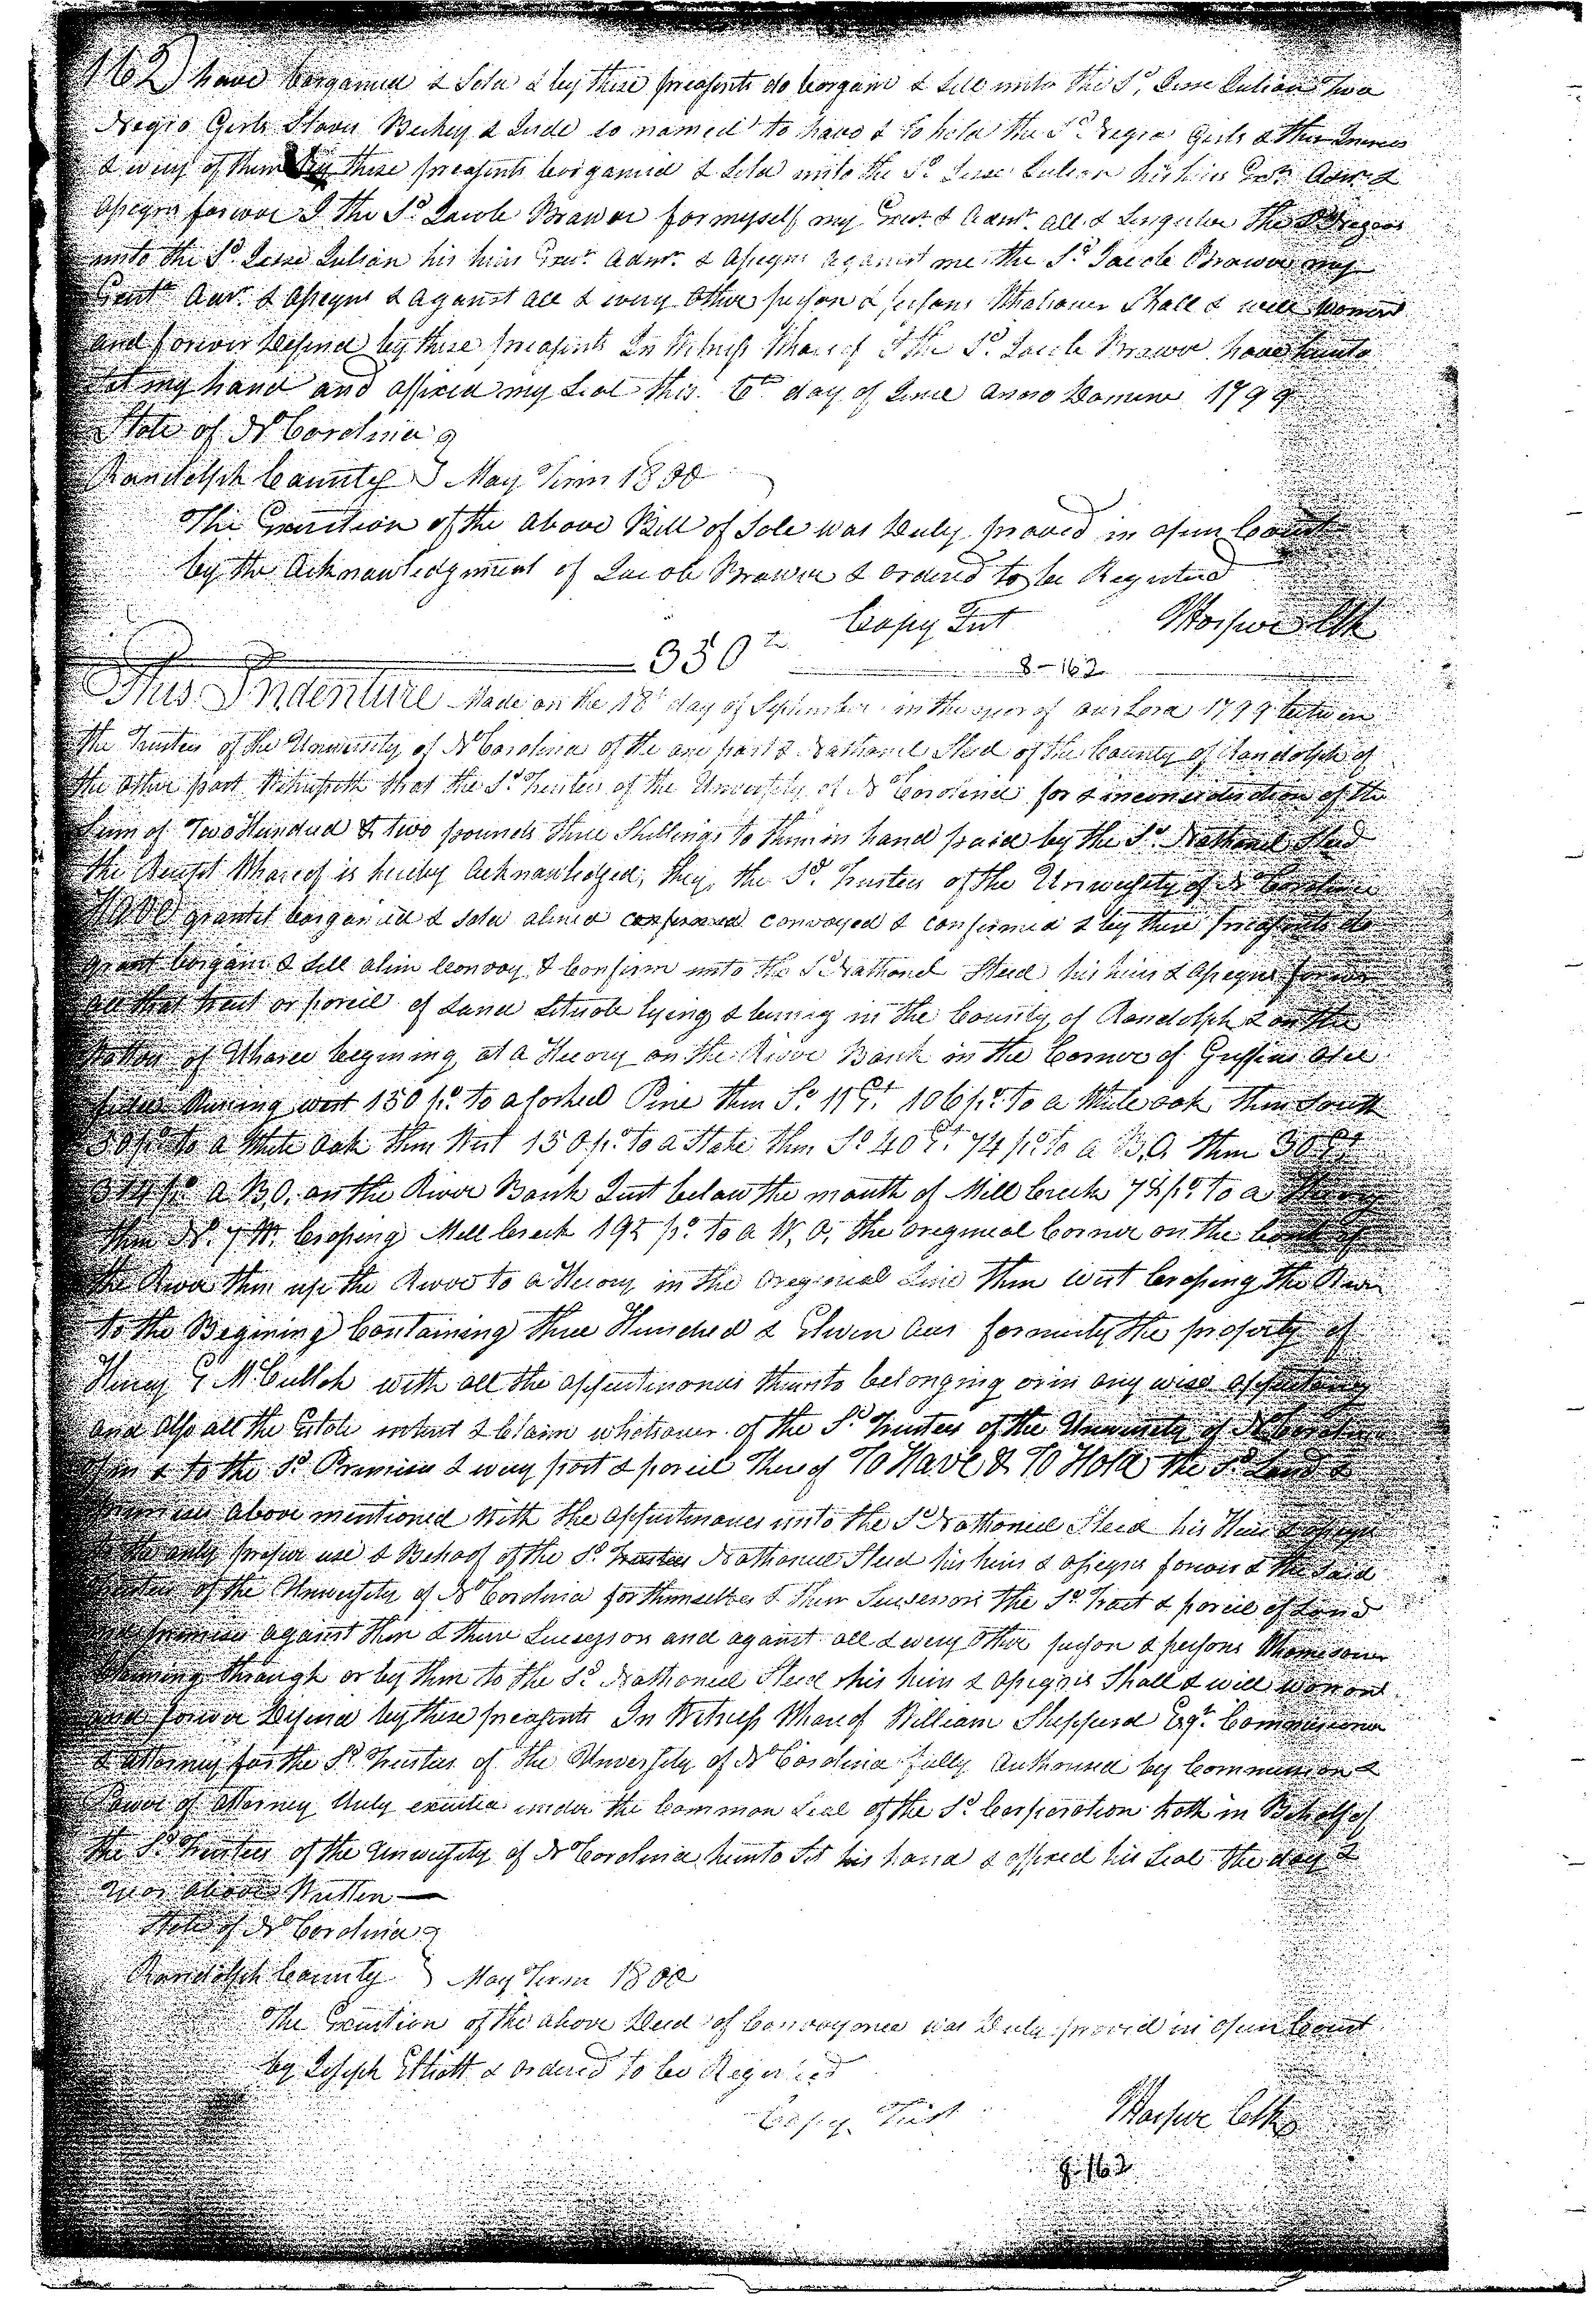 162) have bargained & Sold & by these presents do bargain & Sell unto the Sd. Jesse Julian Two
Negro Girls Slaves Beckey & Jude so named to have & to hold the Sd Negro Girls & their Increas
& every of them by these presents bargained & Sold unto the Sd Jesse Julian his heirs Exrs. Admr. &
Assigns forever I the Sd. Jacob Brawer for myself my Exutr. & Admr. all & Singular the Sd Negroes
unto the Sd. Jesse Julian his heirs Exutr. Admr. & Assigns against me the Sd. Jacob Brawer my
Exutr Amr. & Assigns & against all & every other person & persons Whatsoever Shall & will Warrant
and forever Defend by these presents In Witness Whareof I the Sd. Jacob Brawer have hunto
Set my hand and affixed my Seal this 6th day of June Anno Domini 1799
State of No Carolina
Randolph County May Term 1800
The Execution of the above Bill of Sale was Duly proved in open Court
by the Acknowledgment of Jacob Brawer & ordered to be Registered
Copy Test Harper Clk
350
8-162
This Indenture Made on the 18t day of September in the year of our Lord 1799 between
the Trustees of the University of No Carolina of the one part & Nathaniel Steed of the County of Randolph of
the other part Witnesseth that the Sd. Trustees of the University of No Carolina for & inconsideration of the
Sum of Two Hundred & two pounds three Shillings to them in hand paid by the Sd. Nathaniel Steed
the Receipt Whareof is hereby Acknowledged, they, the Sd. Trustees of the University of No Carolina
Have granted bargained & sold aliend confirmed convayed & confirmed & by these presents do
grant bargain & Sell alien Convay & Confirm unto the Sd Nathaniel Steed his heirs & Assigns forever
all that tract or parcil of Land Situate lying & being in the County of Randolph & on the
Watters of Uharee begining at a Hicory on the River Bank in the Corner of Griffins
Runing west 150 po. to a forked Pine then So 11 Et. 106 po. to a White oak then South
50 po. to a White oak then West 150 po. to a Stake then So 40 Et. 74 po. to a B,O. then
a B,O. on the River Bank Just below the mouth of Mill Creek 74 po. to a
then No. 7 W. Crossing Mill Creek 192 po. to a W, O, the oreginal Corner on the bank of
the River then up the River to a Hicory in the oreginal Line then West Crossing the River
to the Begining Containing three Hundred & Eleven Acrs formerly the property of
Henry E McCulloh with all the appurtinances thereto belonging or in any wise appurtaining
and also all the Estate intrest & Claim whatsoever of the Sd. Trustees of the University of No Carolina
of in & to the Sd. Premises & every part & parcil Thereof To Have & To Hold the Sd. Land &
premises above mentioned With the appurtinances unto the Sd Nathaniel Steed his Heirs & assigns
to the only proper use & Behoof of the Sd. Trustees Nathaniel Steed his heirs & assigns forever & the said
Trustees of the University of No Carolina for themselves & their Successors the Sd. Tract & parcil of Land
and premises against them & there Successors and against all & every other person & persons Whomesoever
Claiming through or by them to the Sd. Nathaniel Steed his heirs & assignes Shall & will Warrant
and forever Defend by these presents In Witness Whareof William Shepperd Esqr. Commissioner
& attorney for the Sd. Trustees of the University of No Carolina fully Authorised by Commission &
Power of attorney Duly executed under the Common Seal of the Sd. Corporation hath in Behalf of
the Sd. Trustees of the University of No Carolina hunto Set his hand & affixed his Seal the day &
year above Written
State of No Carolina
Randolph County May Term 1800
The Execution of the above Deed of Convayance was Duly proved in open Court
by Joseph Elliott & ordered to be Registered
Copy Test Harper Clk
8-162